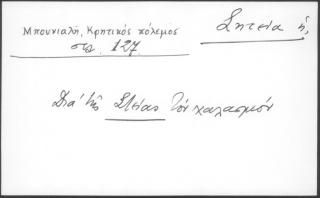 Μπουνιαλῆ, Κρητικός πόλεμος
στρ. 127.
Σητεία ἡ,
Διά τῆς Στείας τον χαλασμόν